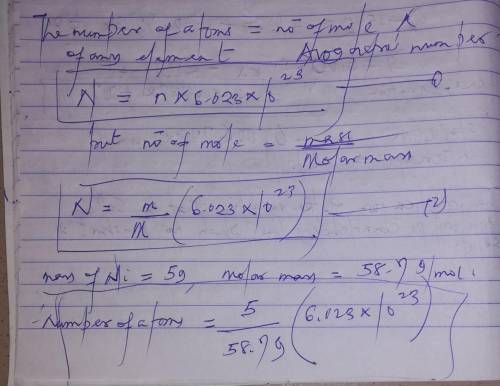 The number of atoms = no of mole X
of any element Avogadro number
N = n X 6.023 X 10^23 — 1.
but no of mole = mass / Molar mass
N = m / M (6.023 X 10^23) — (2)
mass of Ni = 5g, molar mass = 58.7 g/mol.
Number of atoms = 5 / 58.7g (6.023 X 10^23)